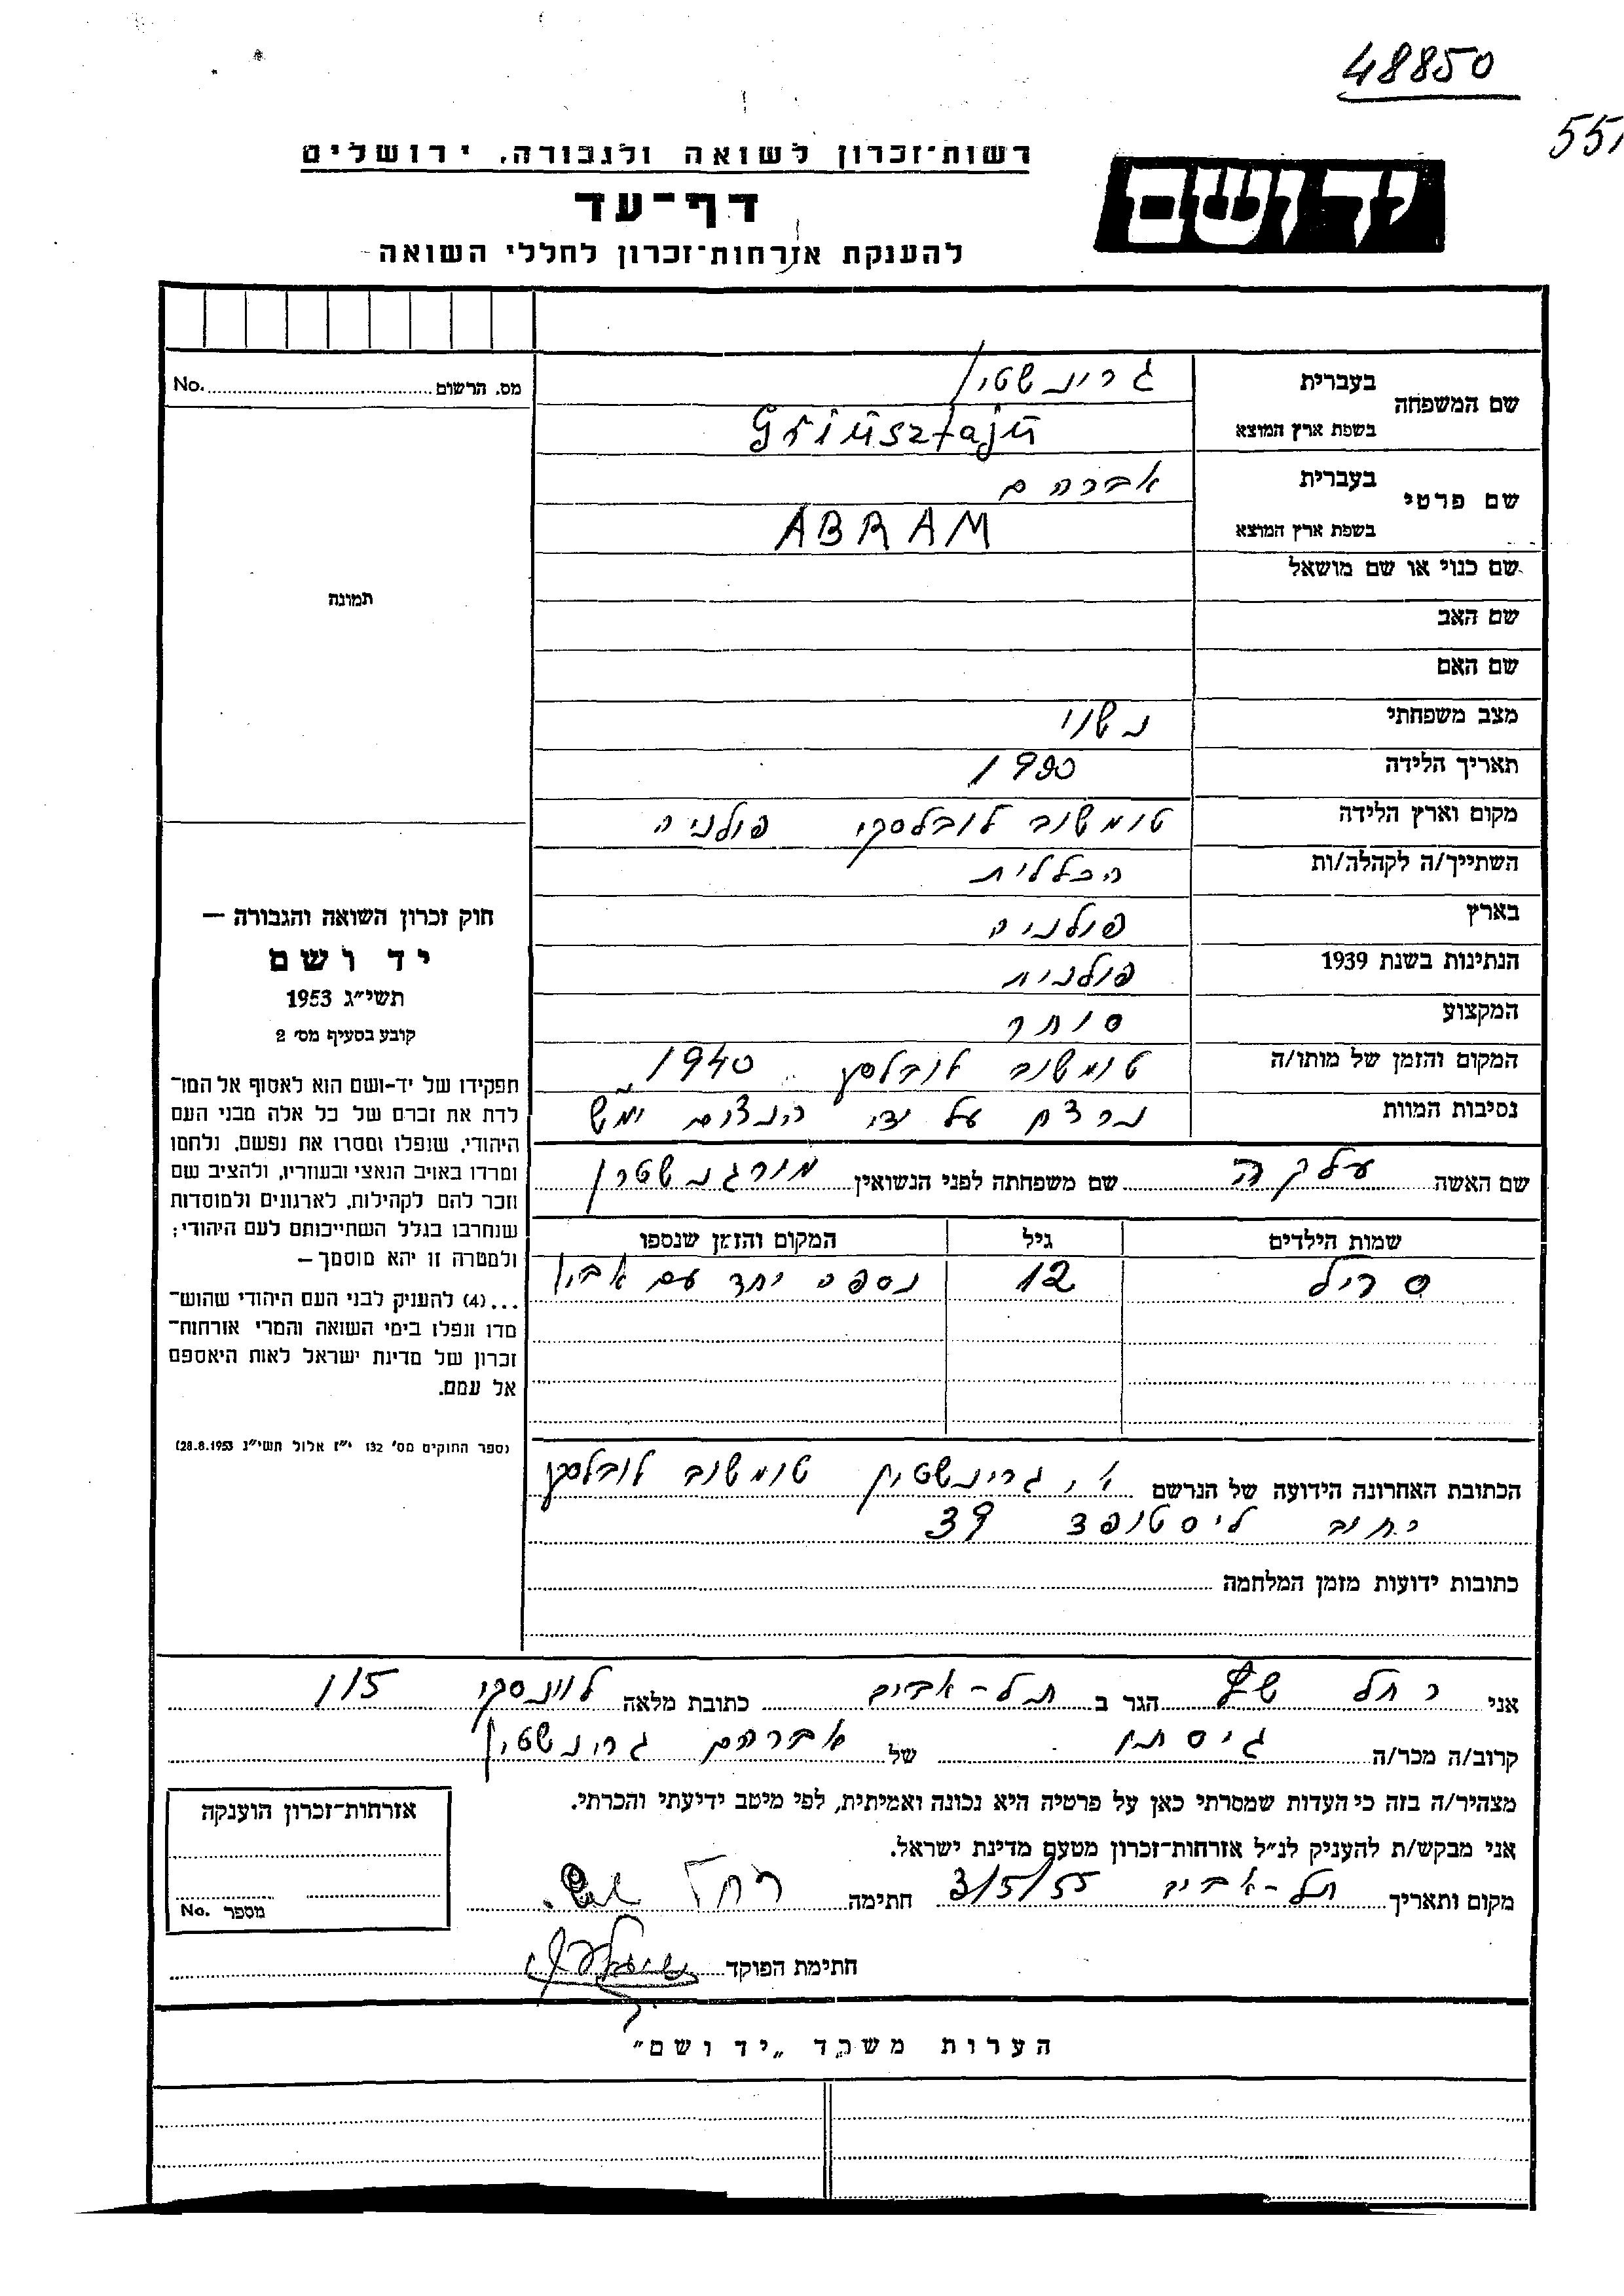 48850
551
רשות־זכרון לשואה ולגבורה, ירושלים
יד ושם
דף־עד
להענקת אזרחות־זכרון לחללי השואה
מס. הרשום No.
שם המשפחה בעברית גרינשטין
בשפת ארץ המוצא Grinsztajn
שם פרטי בעברית אברהם
בשפת ארץ המוצא ABRAM
שם כנוי או שם מושאל
תמונה
שם האב
שם האם
מצב משפחתי נשוי
תאריך הלידה 1900
מקום וארץ הלידה טומשוב לובלסקי פולניה
השתייך/ה לקהלה/ות הכללית
בארץ פולניה
הנתינות בשנת 1939 פולנית
המקצוע סוחר
המקום והזמן של מותו/ה טומשוב לובלסקי 1940
נסיבות המוות נרצח על ידי הנצים ימ"ש
חוק זכרון השואה והגבורה —
יד ושם
תשי"ג 1953
קובע בסעיף מס' 2
תפקידו של יד-ושם הוא לאסוף אל המו־
לדת את זכרם של כל אלה מבני העם
היהודי, שנפלו ומסרו את נפשם, נלחמו
ומרדו באויב הנאצי ובעוזריו, ולהציב שם
וזכר להם לקהילות, לארגונים ולמוסדות
שנחרבו בגלל השתייכותם לעם היהודי;
ולמטרה זו יהא מוסמך —
...(4) להעניק לבני העם היהודי שהוש־
מדו ונפלו בימי השואה והמרי אזרחות־
זכרון של מדינת ישראל לאות היאספם
אל עמם.
(ספר החוקים מס' 132 י"ז אלול תשי"ג 28.8.1953)
שם האשה עלקה שם משפחתה לפני הנשואין מורגנשטרן
שמות הילדים גיל המקום והזמן שנספו
סריל 12 נספה יחד עם אביו
הכתובת האחרונה הידועה של הנרשם א. גרינשטין טומשוב לובלסקי
רחוב ליסטופד 39
כתובות ידועות מזמן המלחמה
אני רחל הגר ב תל-אביב כתובת מלאה לוינסקי 115
קרוב/ה מכר/ה גיסתו של אברהם גרינשטין
מצהיר/ה בזה כי העדות שמסרתי כאן על פרטיה היא נכונה ואמיתית, לפי מיטב ידיעתי והכרתי.
אני מבקש/ת להעניק לנ"ל אזרחות־זכרון מטעם מדינת ישראל.
מקום ותאריך תל-אביב 3/5/55 חתימה רחל
חתימת הפוקד
אזרחות־זכרון הוענקה
מספר No.
הערות משרד "יד ושם"